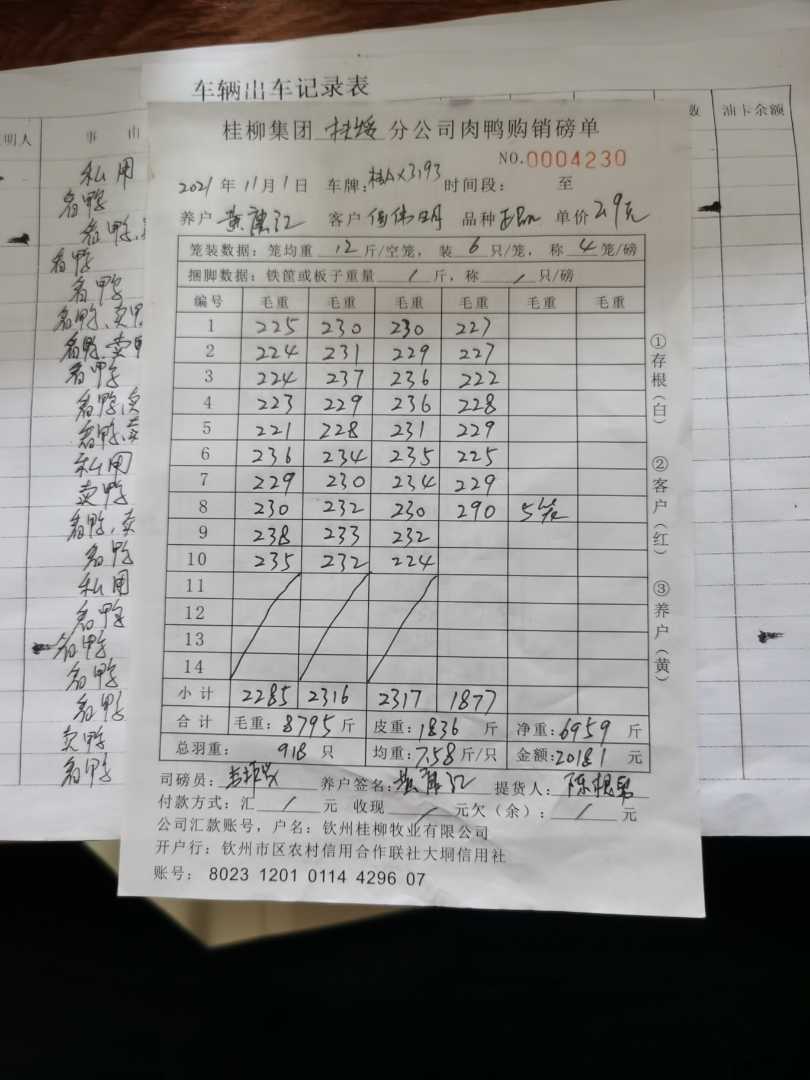 车辆出车记录表
明人 事由 数 油卡余额
私用
看鸭
看鸭
看鸭
看鸭
看鸭、卖鸭
看鸭、卖鸭
看鸭
看鸭
看鸭、卖
私用
卖鸭
看鸭、卖
看鸭
私用
看鸭
看鸭
看鸭
看鸭
卖鸭
看鸭
桂柳集团 分公司肉鸭购销磅单
NO.0004230
2021年11月1日 车牌:桂AX3193 时间段: 至
养户 客户 伍伟明 品种 单价 2.9元
笼装数据:笼均重 12 斤/空笼,装 6 只/笼,称 4 笼/磅
捆脚数据:铁筐或板子重量 / 斤,称 / 只/磅
编号 毛重 毛重 毛重 毛重 毛重 毛重
1 225 230 230 227
2 224 231 229 227
3 224 237 236 222
4 223 229 236 228
5 221 228 231 229
6 236 234 235 225
7 229 230 234 229
8 230 232 230 290 5笼
9 238 233 232
10 235 232 224
11
12
13
14
小计 2285 2316 2317 1877
合计 毛重:8795斤 皮重:1836斤 净重:6959斤
总羽重: 918 只 均重:7.58斤/只 金额:20181元
司磅员: 养户签名: 提货人:
付款方式:汇 / 元 收现 / 元欠(余): / 元
公司汇款账号,户名:钦州桂柳牧业有限公司
开户行:钦州市区农村信用合作联社大垌信用社
账号:8023 1201 0114 4296 07
①存根(白)
②客户(红)
③养户(黄)